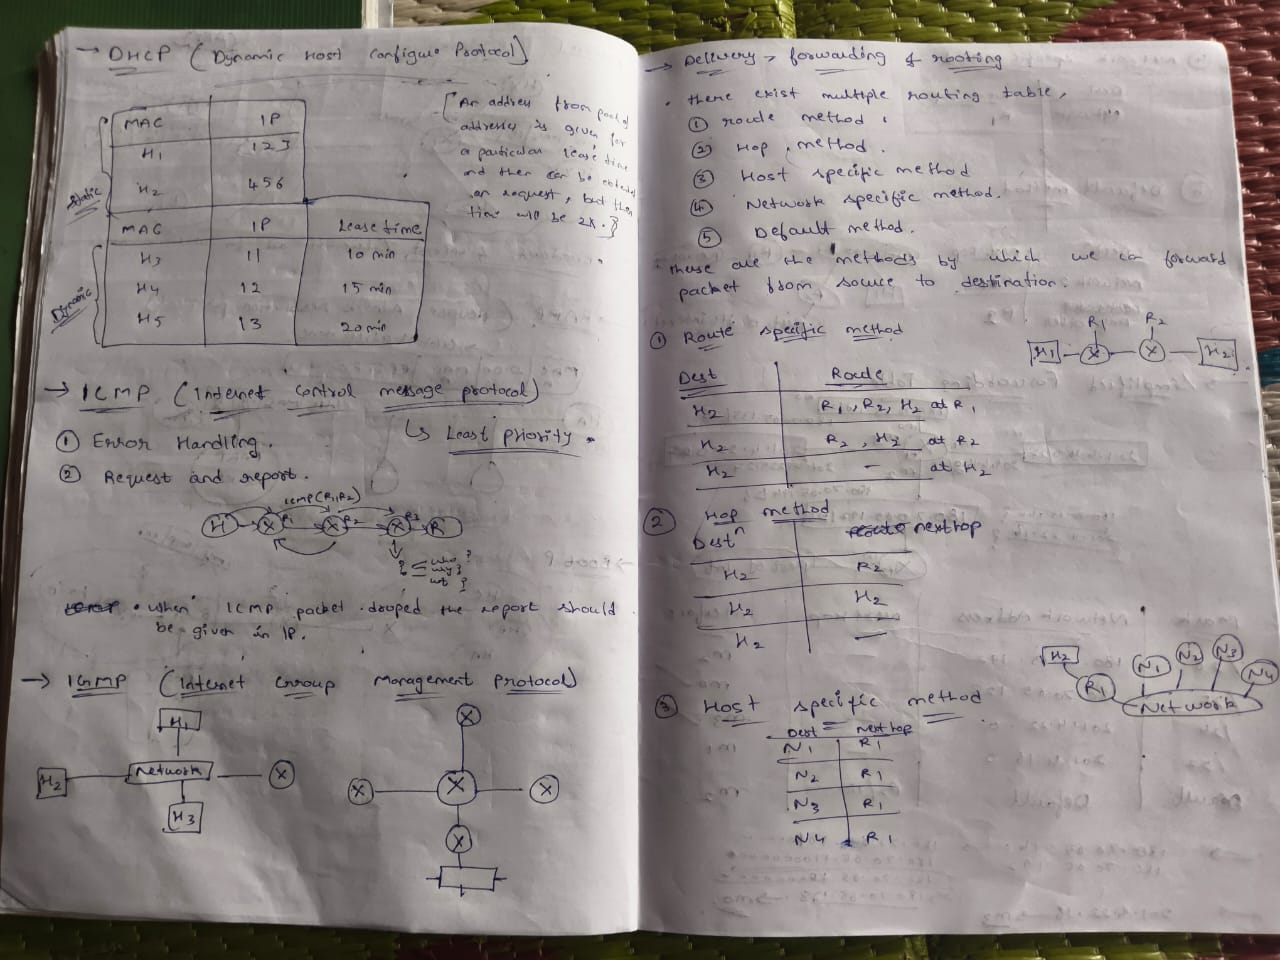 → DHCP (Dynamic Host Configue Protocol)
Static
MAC IP
H1 123
H2 456
Dynamic
MAC IP Lease time
H3 11 10 min
H4 12 15 min
H5 13 20 min
[An address from pool of
addresses is given for
a particular lease time
and then can be extended
on request, but then
time will be 2x.}
→ ICMP (Internet control message protocol)
↳ Least priority.
① Error Handling.
② Request and report.
ICMP(R1,R2)
H X R1 X R2 X R3 R
who?
why}
• when ICMP packet droped the report should
be given in IP.
→ IGMP (Internet Group Management Protocol)
H1
H2 Network X
H3
X
X X X
X
→ Delivery, forwarding & rooting
• there exist multiple routing table,
① route method.
② Hop method.
③ Host specific method
④ Network specific method.
⑤ Default method.
• these are the methods by which we can forward
packet from souce to destination.
① Route specific method
R1 R2
H1 X X H2
Dest Route
H2 R1, R2, H2 at R1
H2 R2, H3 at R2
H2 – at H2
② Hop method
Destn next hop
H2 R2
H2 H2
H2 —
③ Host specific method
H2 R1 Network N1 N2 N3 N4
Dest Next hop
N1 R1
N2 R1
N3 R1
N4 R1